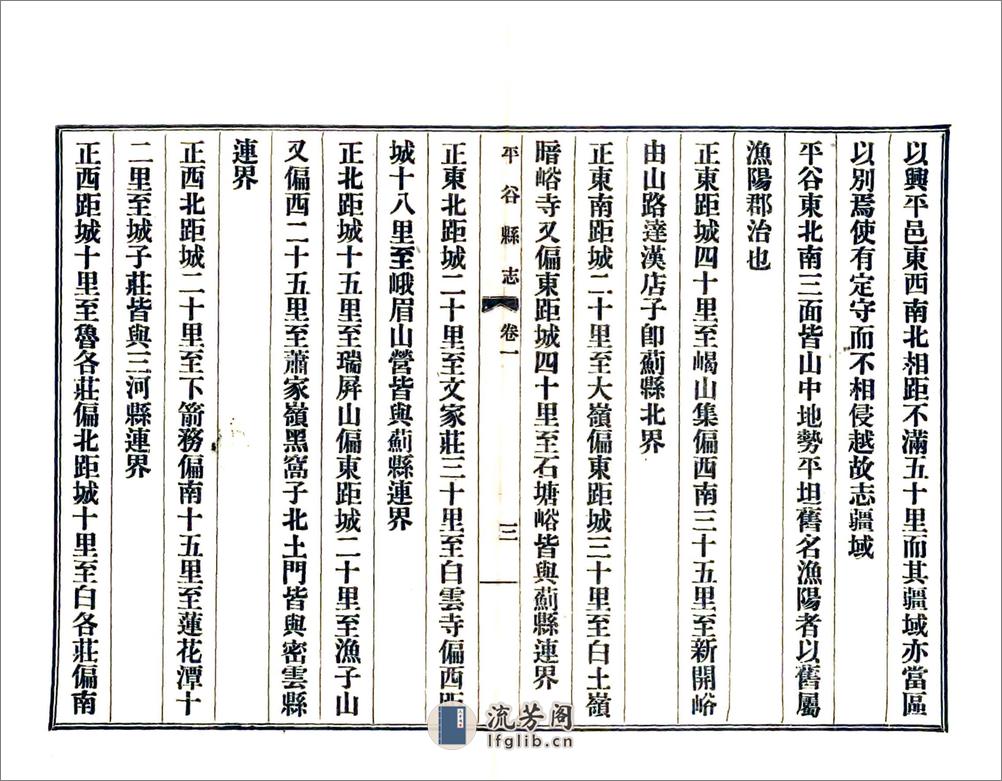 以興平邑東西南北相距不滿五十里而其疆域亦當區
以別焉使有定守而不相侵越故志疆域
平谷東北南三面皆山中地勢平坦舊名漁陽者以舊屬
漁陽郡治也
正東距城四十里至㟂山集偏西南三十五里至新開峪
由山路達漢店子卽薊縣北界
正東南距城二十里至大嶺偏東距城三十里至白土嶺
暗峪寺又偏東距城四十里至石塘峪皆與薊縣連界
平谷縣志
卷一
三
正東北距城二十里至文家莊三十里至白雲寺偏西距
城十八里至峨眉山營皆與薊縣連界
正北距城十五里至瑞屛山偏東距城二十里至漁子山
又偏西二十五里至蕭家嶺黑窩子北土門皆與密雲縣
連界
正西北距城二十里至下箭務偏南十五里至蓮花潭十
二里至城子莊皆與三河縣連界
正西距城十里至魯各莊偏北距城十里至白各莊偏南
流芳阁
lfglib.cn